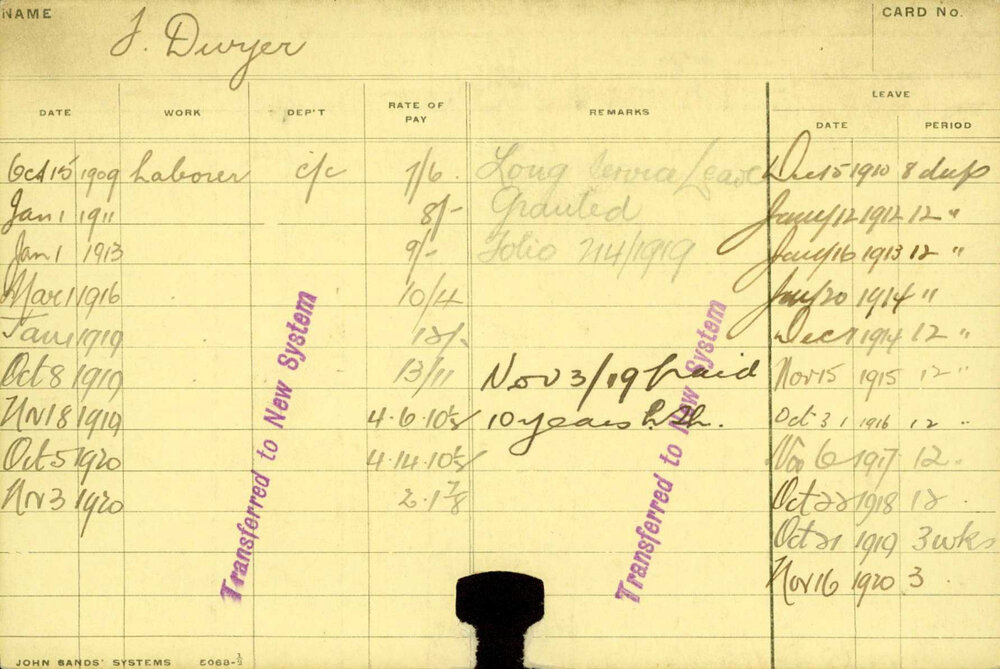 NAME J. Dwyer CARD No.
DATE WORK DEP'T RATE OF PAY REMARKS LEAVE
DATE PERIOD
Oct 15 1909 Laborer c/c 7/6. Long Service Leave Dec 15 1910 8 days
Jan 1 1911 8/- Granted Jany 12 1912 12 "
Jan 1 1913 9/- Folio 214/1919 Jany 16 1913 12 "
Mar 1 1916 10/4 Jany 20 1914 "
Jan 1 1919 12/- Dec 1914 12 "
Oct 8 1919 13/11 Nov 3/19 paid Nov 15 1915 12 "
Nv 18 1919 4.6.10 10 years Oct 31 1916 12 "
Oct 5 1920 4.14.10 Nov 6 1917 12.
Nv 3 1920 2.1 7/8 Oct 22 1918 12.
Oct 21 1919 3 wks
Nov 16 1920 3.
Transferred to New System
Transferred to New System
JOHN SANDS' SYSTEMS 5068-